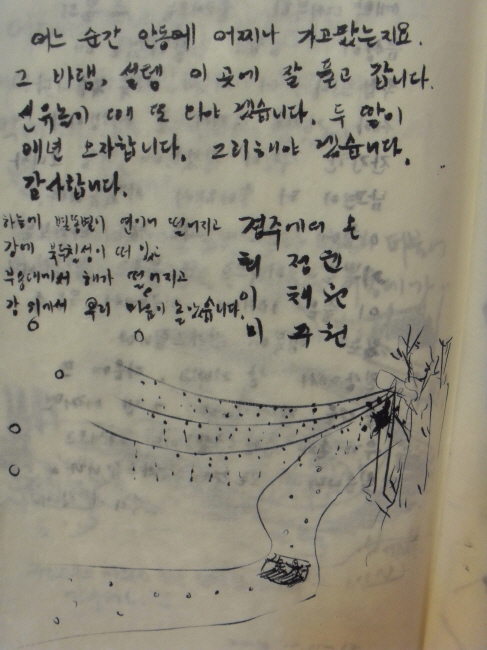 어느 순간 안동에 어찌나 가고팠는지요.
그 바램, 설템 이 곳에 잘 풀고 갑니다.
선유놀이 때 또 와야 겠습니다. 두 딸이
매년 오자합니다. 그리해야 겠습니다.
감사합니다.
하늘에 별똥별이 연이어 떨어지고
강에 북두칠성이 떠 있고
부용대에서 해가 떨어지고
강 위에서 우리 마음이 놀았습니다.
경주에서 온
최 정원
이 채원
이 주원